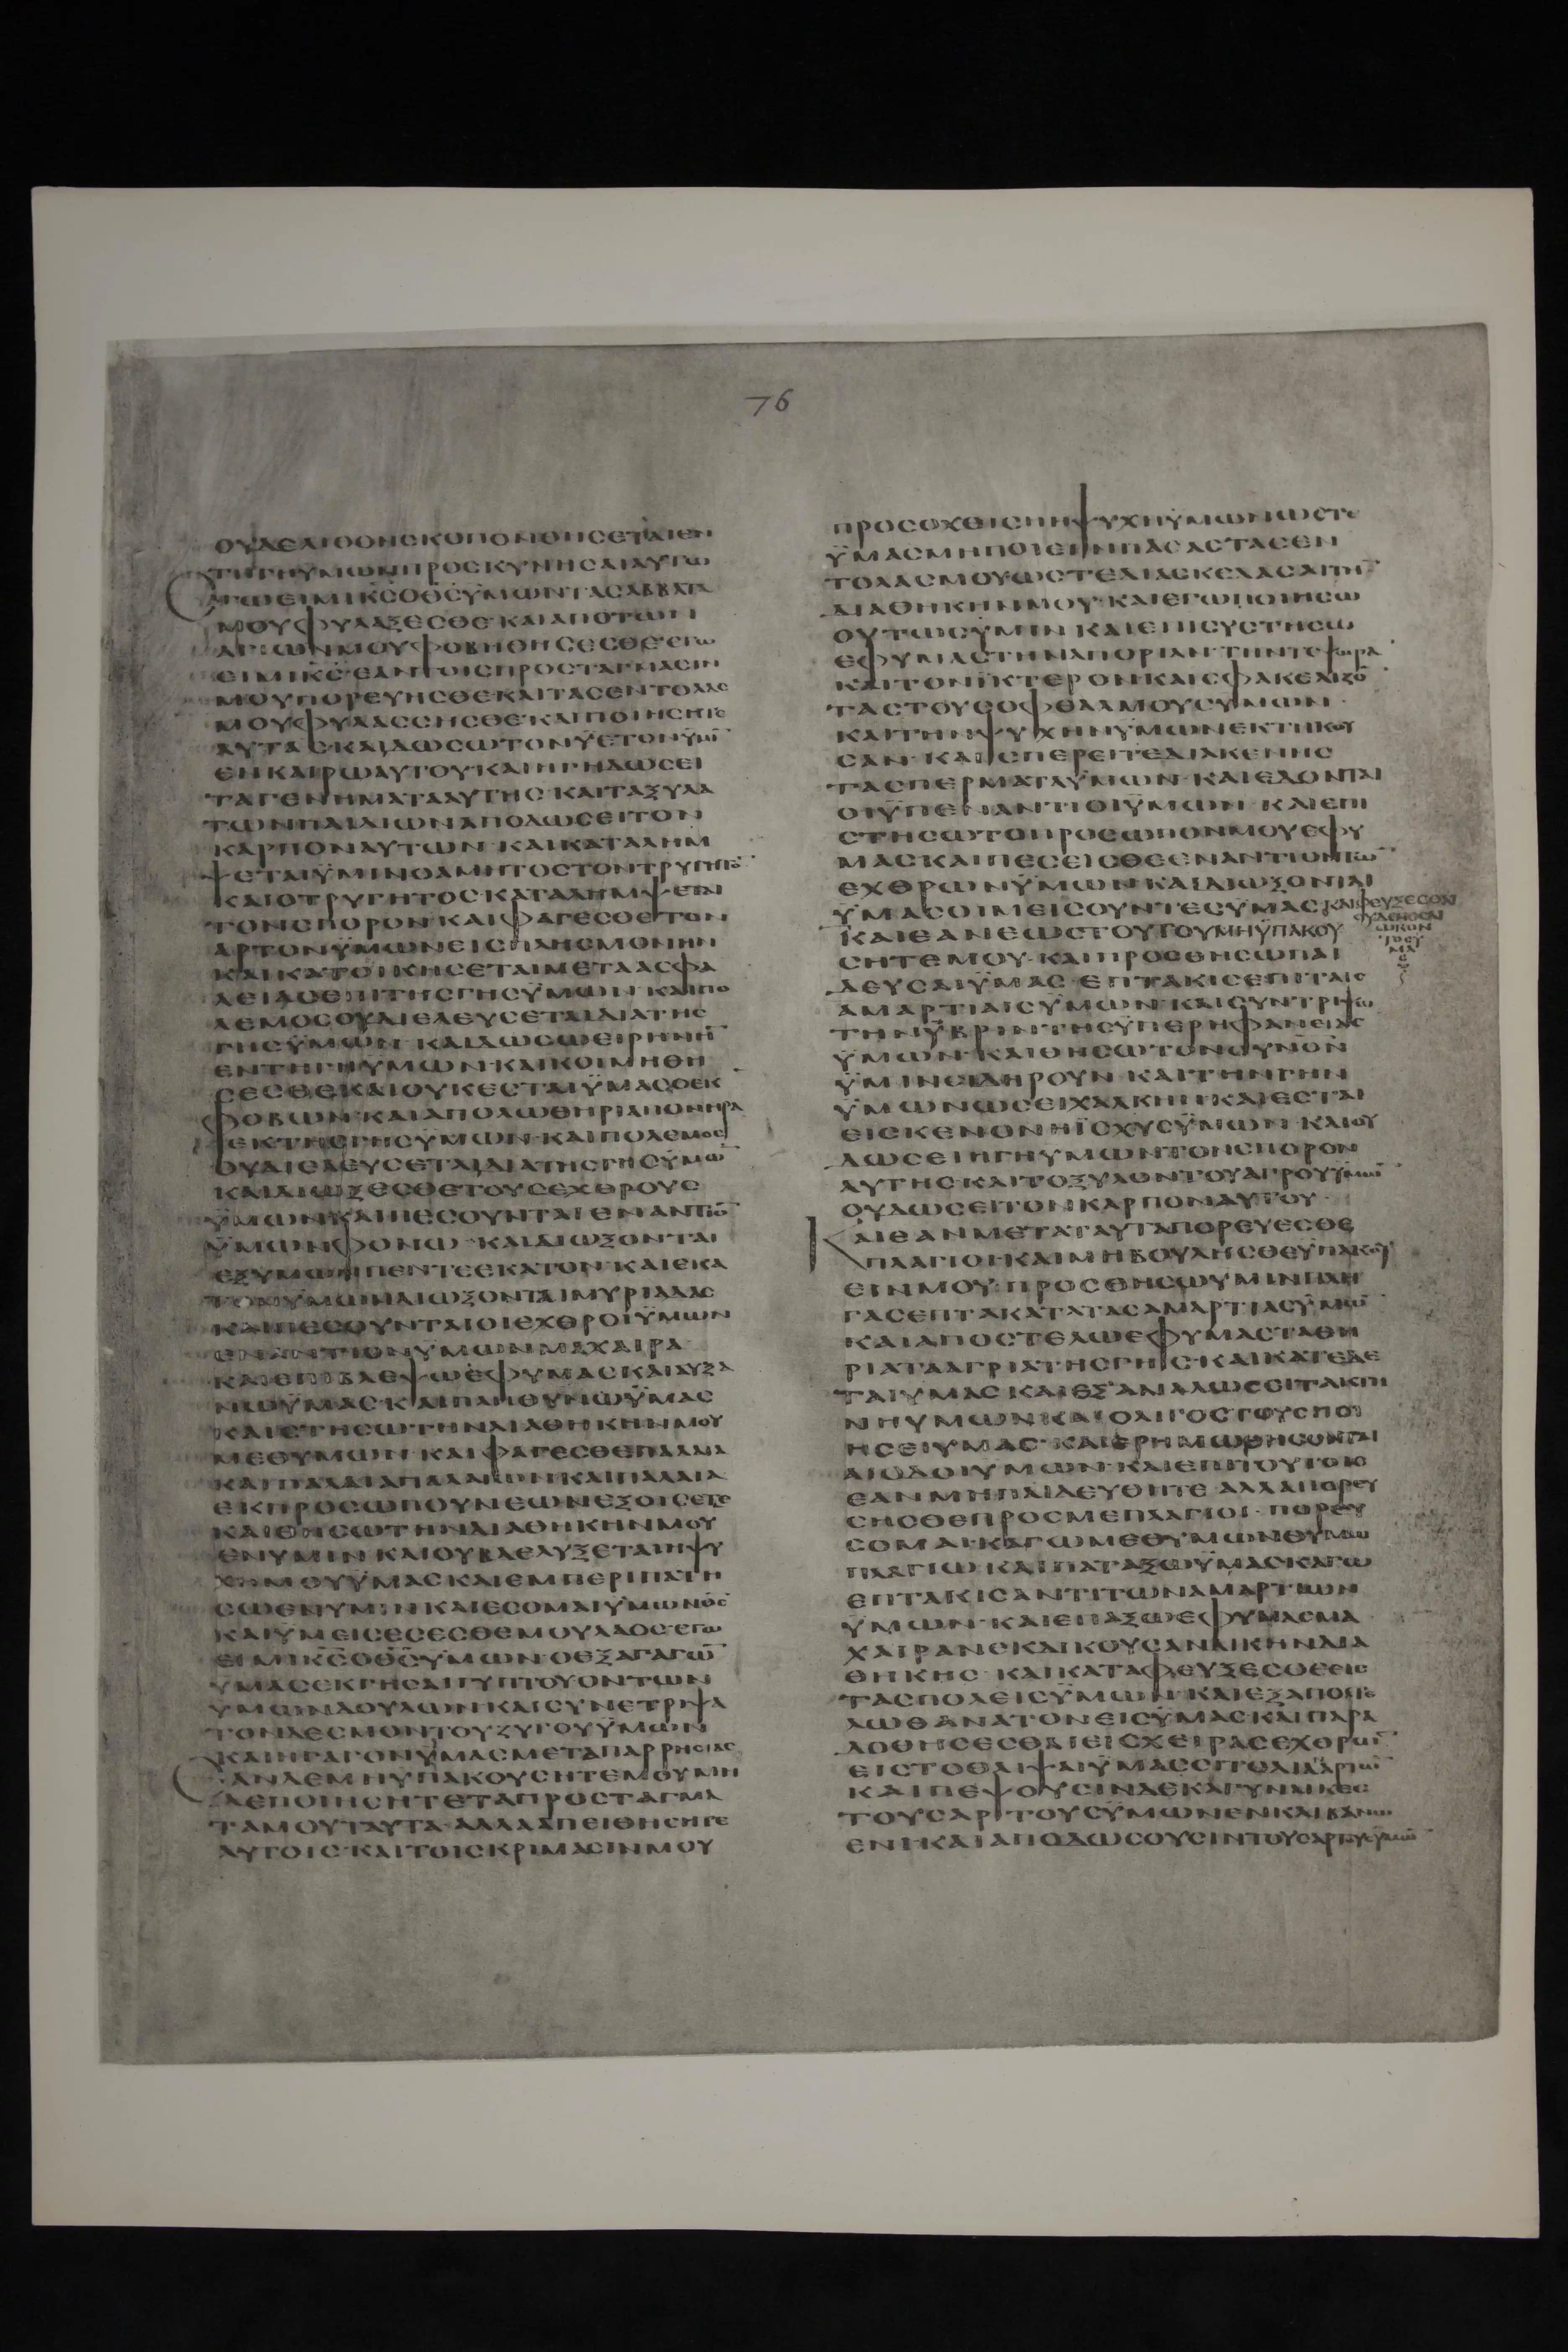 76
ΟΥΔΕΛΙΘΟΝϹΚΟΠΟΝΘΗϹΕΤΑΙΕΝ
ΤΗΓΗΥΜΩΝΠΡΟϹΚΥΝΗϹΑΙΑΥΤΩ
ΕΓΩΕΙΜΙΚ̅Ϲ̅ΟΘ̅Ϲ̅ΥΜΩΝΤΑϹΑΒΒΑΤΑ
ΜΟΥΦΥΛΑΞΕϹΘΕ·ΚΑΙΑΠΟΤΩΝ
ΑΓΙΩΝΜΟΥΦΟΒΗΘΗϹΕϹΘΕ·ΕΓΩ
ΕΙΜΙΚ̅Ϲ̅·ΕΑΝΤΟΙϹΠΡΟϹΤΑΓΜΑϹΙΝ
ΜΟΥΠΟΡΕΥΗϹΘΕΚΑΙΤΑϹΕΝΤΟΛΑϹ
ΜΟΥΦΥΛΑϹϹΗϹΘΕ·ΚΑΙΠΟΙΗϹΗΤΕ
ΑΥΤΑϹ·ΚΑΙΔΩϹΩΤΟΝΫΕΤΟΝΫΜΙ̅
ΕΝΚΑΙΡΩΑΥΤΟΥ·ΚΑΙΗΓΗΔΩϹΕΙ
ΤΑΓΕΝΗΜΑΤΑΑΥΤΗϹ·ΚΑΙΤΑΞΥΛΑ
ΤΩΝΠΑΙΔΙΩΝΑΠΟΔΩϹΕΙΤΟΝ
ΚΑΡΠΟΝΑΥΤΩΝ·ΚΑΙΚΑΤΑΛΗΜ
ΨΕΤΑΙΫΜΙΝΟΑΜΗΤΟϹΤΟΝΤΡΥΓΗΤΟ̅
ΚΑΙΟΤΡΥΓΗΤΟϹΚΑΤΑΛΗΜΨΕΤΑΙ
ΤΟΝϹΠΟΡΟΝ·ΚΑΙΦΑΓΕϹΘΕΤΟΝ
ΑΡΤΟΝΫΜΩΝΕΙϹΠΛΗϹΜΟΝΗΝ
ΚΑΙΚΑΤΟΙΚΗϹΕΤΑΙΜΕΤΑΑϹΦΑ
ΛΕΙΑϹΕΠΙΤΗϹΓΗϹΫΜΩΝ·ΚΑΙΠΟ
ΛΕΜΟϹΟΥΔΙΕΛΕΥϹΕΤΑΙΔΙΑΤΗϹ
ΓΗϹΫΜΩΝ·ΚΑΙΔΩϹΩΕΙΡΗΝΗ̅
ΕΝΤΗΓΗΥΜΩΝ·ΚΑΙΚΟΙΜΗΘΗ
ϹΕϹΘΕΚΑΙΟΥΚΕϹΤΑΙΫΜΑϹΟΕΚ
ΦΟΒΩΝ·ΚΑΙΑΠΟΛΩΘΗΡΙΑΠΟΝΗΡΑ
ΕΚΤΗϹΓΗϹΫΜΩΝ·ΚΑΙΠΟΛΕΜΟϹ
ΟΥΔΙΕΛΕΥϹΕΤΑΙΔΙΑΤΗϹΓΗϹΫΜΩ̅
ΚΑΙΔΙΩΞΕϹΘΕΤΟΥϹΕΧΘΡΟΥϹ
ΫΜΩΝ·ΚΑΙΠΕϹΟΥΝΤΑΙΕΝΑΝΤΙΟ̅
ΫΜΩΝΦΟΝΩ·ΚΑΙΔΙΩΞΟΝΤΑΙ
ΕΞΥΜΩΝΠΕΝΤΕΕΚΑΤΟΝ·ΚΑΙΕΚΑ
ΤΟΝΫΜΩΝΔΙΩΞΟΝΤΑΙΜΥΡΙΑΔΑϹ
ΚΑΙΠΕϹΟΥΝΤΑΙΟΙΕΧΘΡΟΙΫΜΩΝ
ΕΝΑΝΤΙΟΝΥΜΩΝΜΑΧΑΙΡΑ
ΚΑΙΕΠΙΒΛΕΨΩΕΦΥΜΑϹΚΑΙΑΥΞΑ
ΝΩΫΜΑϹ·ΚΑΙΠΛΗΘΥΝΩΫΜΑϹ
ΚΑΙϹΤΗϹΩΤΗΝΔΙΑΘΗΚΗΝΜΟΥ
ΜΕΘΥΜΩΝ·ΚΑΙΦΑΓΕϹΘΕΠΑΛΑΙΑ
ΚΑΙΠΑΛΑΙΑΠΑΛΑΙΩΝ·ΚΑΙΠΑΛΑΙΑ
ΕΚΠΡΟϹΩΠΟΥΝΕΩΝΕΞΟΙϹΕΤΕ
ΚΑΙΘΗϹΩΤΗΝΔΙΑΘΗΚΗΝΜΟΥ
ΕΝΥΜΙΝ·ΚΑΙΟΥΒΔΕΛΥΞΕΤΑΙΗΨΥ
ΧΗΜΟΥΫΜΑϹΚΑΙΕΜΠΕΡΙΠΑΤΗ
ϹΩΕΝΥΜΙΝ·ΚΑΙΕϹΟΜΑΙΥΜΩΝΘ̅Ϲ̅
ΚΑΙΥΜΕΙϹΕϹΕϹΘΕΜΟΥΛΑΟϹ·ΕΓΩ
ΕΙΜΙΚ̅Ϲ̅ΟΘ̅Ϲ̅ΫΜΩΝ·ΟΕΞΑΓΑΓΩ̅
ΥΜΑϹΕΚΓΗϹΑΙΓΥΠΤΟΥΟΝΤΩΝ
ΥΜΩΝΔΟΥΛΩΝ·ΚΑΙϹΥΝΕΤΡΙΨΑ
ΤΟΝΔΕϹΜΟΝΤΟΥΖΥΓΟΥΫΜΩΝ
ΚΑΙΗΓΑΓΟΝΫΜΑϹΜΕΤΑΠΑΡΡΗϹΙΑϹ
ΕΑΝΔΕΜΗΫΠΑΚΟΥϹΗΤΕΜΟΥΜΗ
ΔΕΠΟΙΗϹΗΤΕΤΑΠΡΟϹΤΑΓΜΑ
ΤΑΜΟΥΤΑΥΤΑ·ΑΛΛΑΑΠΕΙΘΗϹΗΤΕ
ΑΥΤΟΙϹ·ΚΑΙΤΟΙϹΚΡΙΜΑϹΙΝΜΟΥ
ΠΡΟϹΟΧΘΙϹΗΗΨΥΧΗΫΜΩΝΩϹΤΕ
ΫΜΑϹΜΗΠΟΙΕΙΝΠΑϹΑϹΤΑϹΕΝ
ΤΟΛΑϹΜΟΥΩϹΤΕΔΙΑϹΚΕΔΑϹΑΙΤΗ̅
ΔΙΑΘΗΚΗΝΜΟΥ·ΚΑΙΕΓΩΠΟΙΗϹΩ
ΟΥΤΩϹΫΜΙΝ·ΚΑΙΕΠΙϹΥϹΤΗϹΩ
ΕΦΥΜΑϹΤΗΝΑΠΟΡΙΑΝ·ΤΗΝΤΕΨΩΡΑ̅
ΚΑΙΤΟΝΪΚΤΕΡΟΝ·ΚΑΙϹΦΑΚΕΛΙΖΟ̅
ΤΑϹΤΟΥϹΟΦΘΑΛΜΟΥϹΥΜΩΝ·
ΚΑΙΤΗΝΨΥΧΗΝΥΜΩΝΕΚΤΗΚΟΥ
ϹΑΝ·ΚΑΙϹΠΕΡΕΙΤΕΔΙΑΚΕΝΗϹ
ΤΑϹΠΕΡΜΑΤΑΫΜΩΝ·ΚΑΙΕΔΟΝΤΑΙ
ΟΙΫΠΕΝΑΝΤΙΟΙΫΜΩΝ·ΚΑΙΕΠΙ
ϹΤΗϹΩΤΟΠΡΟϹΩΠΟΝΜΟΥΕΦΥ
ΜΑϹΚΑΙΠΕϹΕΙϹΘΕΕΝΑΝΤΙΟΝΤΩ̅
ΕΧΘΡΩΝΫΜΩΝ·ΚΑΙΔΙΩΞΟΝΤΑΙ
ΫΜΑϹΟΙΜΕΙϹΟΥΝΤΕϹΫΜΑϹ
ΚΑΙΦΕΥΞΕϹΘΑΙ
ΟΥΔΕΝΟϹΔΙ
ΩΚΟΝ
ΤΟϹΫ
ΜΑ
Ϲ
ΚΑΙΕΑΝΕΩϹΤΟΥΤΟΥΜΗΫΠΑΚΟΥ
ϹΗΤΕΜΟΥ·ΚΑΙΠΡΟϹΘΗϹΩΠΑΙ
ΔΕΥϹΑΙΫΜΑϹ·ΕΠΤΑΚΙϹΕΠΙΤΑΙϹ
ΑΜΑΡΤΙΑΙϹΫΜΩΝ·ΚΑΙϹΥΝΤΡΙΨΩ
ΤΗΝΫΒΡΙΝΤΗϹΫΠΕΡΗΦΑΝΕΙΑϹ
ΫΜΩΝ·ΚΑΙΘΗϹΩΤΟΝΟΥΝΟΝ
ΫΜΙΝϹΙΔΗΡΟΥΝ·ΚΑΙΤΗΝΓΗΝ
ΫΜΩΝΩϹΕΙΧΑΛΚΗΝ·ΚΑΙΕϹΤΑΙ
ΕΙϹΚΕΝΟΝΗΪϹΧΥϹΫΜΩΝ·ΚΑΙΟΥ
ΔΩϹΕΙΗΓΗΥΜΩΝΤΟΝϹΠΟΡΟΝ
ΑΥΤΗϹ·ΚΑΙΤΟΞΥΛΟΝΤΟΥΑΓΡΟΥΫΜΩ̅
ΟΥΔΩϹΕΙΤΟΝΚΑΡΠΟΝΑΥΤΟΥ·
ΚΑΙΕΑΝΜΕΤΑΤΑΥΤΑΠΟΡΕΥΕϹΘΕ
ΠΛΑΓΙΟΙ·ΚΑΙΜΗΒΟΥΛΗϹΘΕΫΠΑΚΟΥ
ΕΙΝΜΟΥ·ΠΡΟϹΘΗϹΩΥΜΙΝΠΛΗ
ΓΑϹΕΠΤΑΚΑΤΑΤΑϹΑΜΑΡΤΙΑϹΫΜΩ̅
ΚΑΙΑΠΟϹΤΕΛΩΕΦΥΜΑϹΤΑΘΗ
ΡΙΑΤΑΑΓΡΙΑΤΗϹΓΗϹ·ΚΑΙΚΑΤΕΔΕ
ΤΑΙΥΜΑϹ·ΚΑΙΕΞΑΝΑΛΩϹΕΙΤΑΚΤΗ
ΝΗΥΜΩΝ·ΚΑΙΟΛΙΓΟϹΤΟΥϹΠΟΙ
ΗϹΕΙΥΜΑϹ·ΚΑΙΕΡΗΜΩΘΗϹΟΝΤΑΙ
ΑΙΟΔΟΙΥΜΩΝ·ΚΑΙΕΠΙΤΟΥΤΟΙϹ
ΕΑΝΜΗΠΑΙΔΕΥΘΗΤΕ·ΑΛΛΑΠΟΡΕΥ
ΗϹΘΕΠΡΟϹΜΕΠΛΑΓΙΟΙ·ΠΟΡΕΥ
ϹΟΜΑΙ·ΚΑΓΩΜΕΘΥΜΩΝΘΥΜΩ
ΠΛΑΓΙΩ·ΚΑΙΠΑΤΑΞΩΫΜΑϹ·ΚΑΓΩ
ΕΠΤΑΚΙϹΑΝΤΙΤΩΝΑΜΑΡΤΙΩΝ
ΫΜΩΝ·ΚΑΙΕΠΑΞΩΕΦΥΜΑϹΜΑ
ΧΑΙΡΑΝΕΚΔΙΚΟΥϹΑΝΔΙΚΗΝΔΙΑ
ΘΗΚΗϹ·ΚΑΙΚΑΤΑΦΕΥΞΕϹΘΕΕΙϹ
ΤΑϹΠΟΛΕΙϹΫΜΩΝ·ΚΑΙΕΞΑΠΟϹΤΕ
ΛΩΘΑΝΑΤΟΝΕΙϹΫΜΑϹ·ΚΑΙΠΑΡΑ
ΔΟΘΗϹΕϹΘΑΙΕΙϹΧΕΙΡΑϹΕΧΘΡΩ̅
ΕΝΤΩΘΛΙΨΑΙΫΜΑϹϹΙΤΟΔΙΑΑΡΤΩ̅
ΚΑΙΠΕΨΟΥϹΙΝΔΕΚΑΓΥΝΑΙΚΕϹ
ΤΟΥϹΑΡΤΟΥϹΫΜΩΝΕΝΚΛΙΒΑΝΩ
ΕΝΙ·ΚΑΙΑΠΟΔΩϹΟΥϹΙΝΤΟΥϹΑΡΤΟΥϹΫΜΩ̅